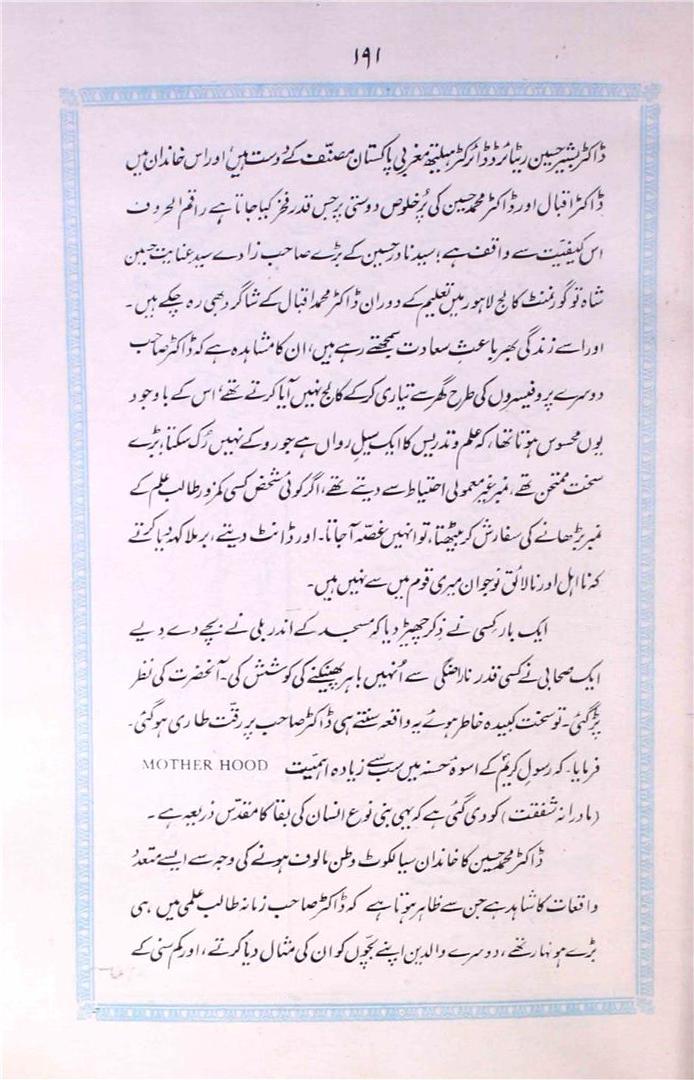 ۱۹۱
ڈاکٹر بشیر حسین ریٹائرڈ ڈائرکٹر ہیلتھ مغربی پاکستان مصنّف کے دوست ہیں‘ اور اس خاندان میں
ڈاکٹر اقبال اور ڈاکٹر محمد حسین کی پُر خلوص دوستی پر جس قدر فخر کیا جاتا ہے راقم الحروف
اس کیفیّت سے واقف ہے؛ سید نادر حسین کے بڑے صاحب زادے سید عنایت حسین
شاہ تو گورنمنٹ کالج لاہور میں تعلیم کے دوران ڈاکٹر محمد اقبال کے شاگرد بھی رہ چکے ہیں۔
اور اسے زندگی بھر باعثِ سعادت سمجھتے رہے ہیں، ان کا مشاہدہ ہے کہ ڈاکٹر صاحب
دوسرے پروفیسروں کی طرح گھر سے تیاری کر کے کالج نہیں آیا کرتے تھے‘ اس کے باوجود
یوں محسوس ہوتا تھا، کہ علم و تدریس کا ایک سیلِ رواں ہے جو روکے نہیں رُک سکتا، بڑے
سخت ممتحن تھے، نمبر غیر معمولی احتیاط سے دیتے تھے، اگر کوئی شخص کسی کمزور طالب علم کے
نمبر بڑھانے کی سفارش کر بیٹھتا، تو انہیں غصّہ آ جاتا۔ اور ڈانٹ دیتے، برملا کہہ دیا کرتے
کہ نا اہل اور نالائق نوجوان میری قوم میں سے نہیں ہیں۔
ایک بار کسی نے ذکر چھیڑ دیا کہ مسجد کے اندر بلی نے بچے دے دیے
ایک صحابی نے کسی قدر ناراضگی سے اُنہیں باہر پھینکنے کی کوشش کی۔ آنحضرت کی نظر
پڑ گئی۔ تو سخت کبیدہ خاطر ہوئے یہ واقعہ سنتے ہی ڈاکٹر صاحب پر رقّت طاری ہو گئی۔
فرمایا۔ کہ رسولِ کریمؐ کے اسوۂ حسنہ میں سب سے زیادہ اہمیّت MOTHER HOOD
(مادرانہ شفقت) کو دی گئی ہے کہ یہی بنی نوع انسان کی بقا کا مقدّس ذریعہ ہے۔
ڈاکٹر محمد حسین کا خاندان سیالکوٹ وطنِ مالوف ہونے کی وجہ سے ایسے متعدد
واقعات کا شاہد ہے جن سے ظاہر ہوتا ہے کہ ڈاکٹر صاحب زمانہ طالب علمی میں ہی
بڑے ہونہار تھے، دوسرے والدین اپنے بچّوں کو ان کی مثال دیا کرتے، اور کم سنی کے